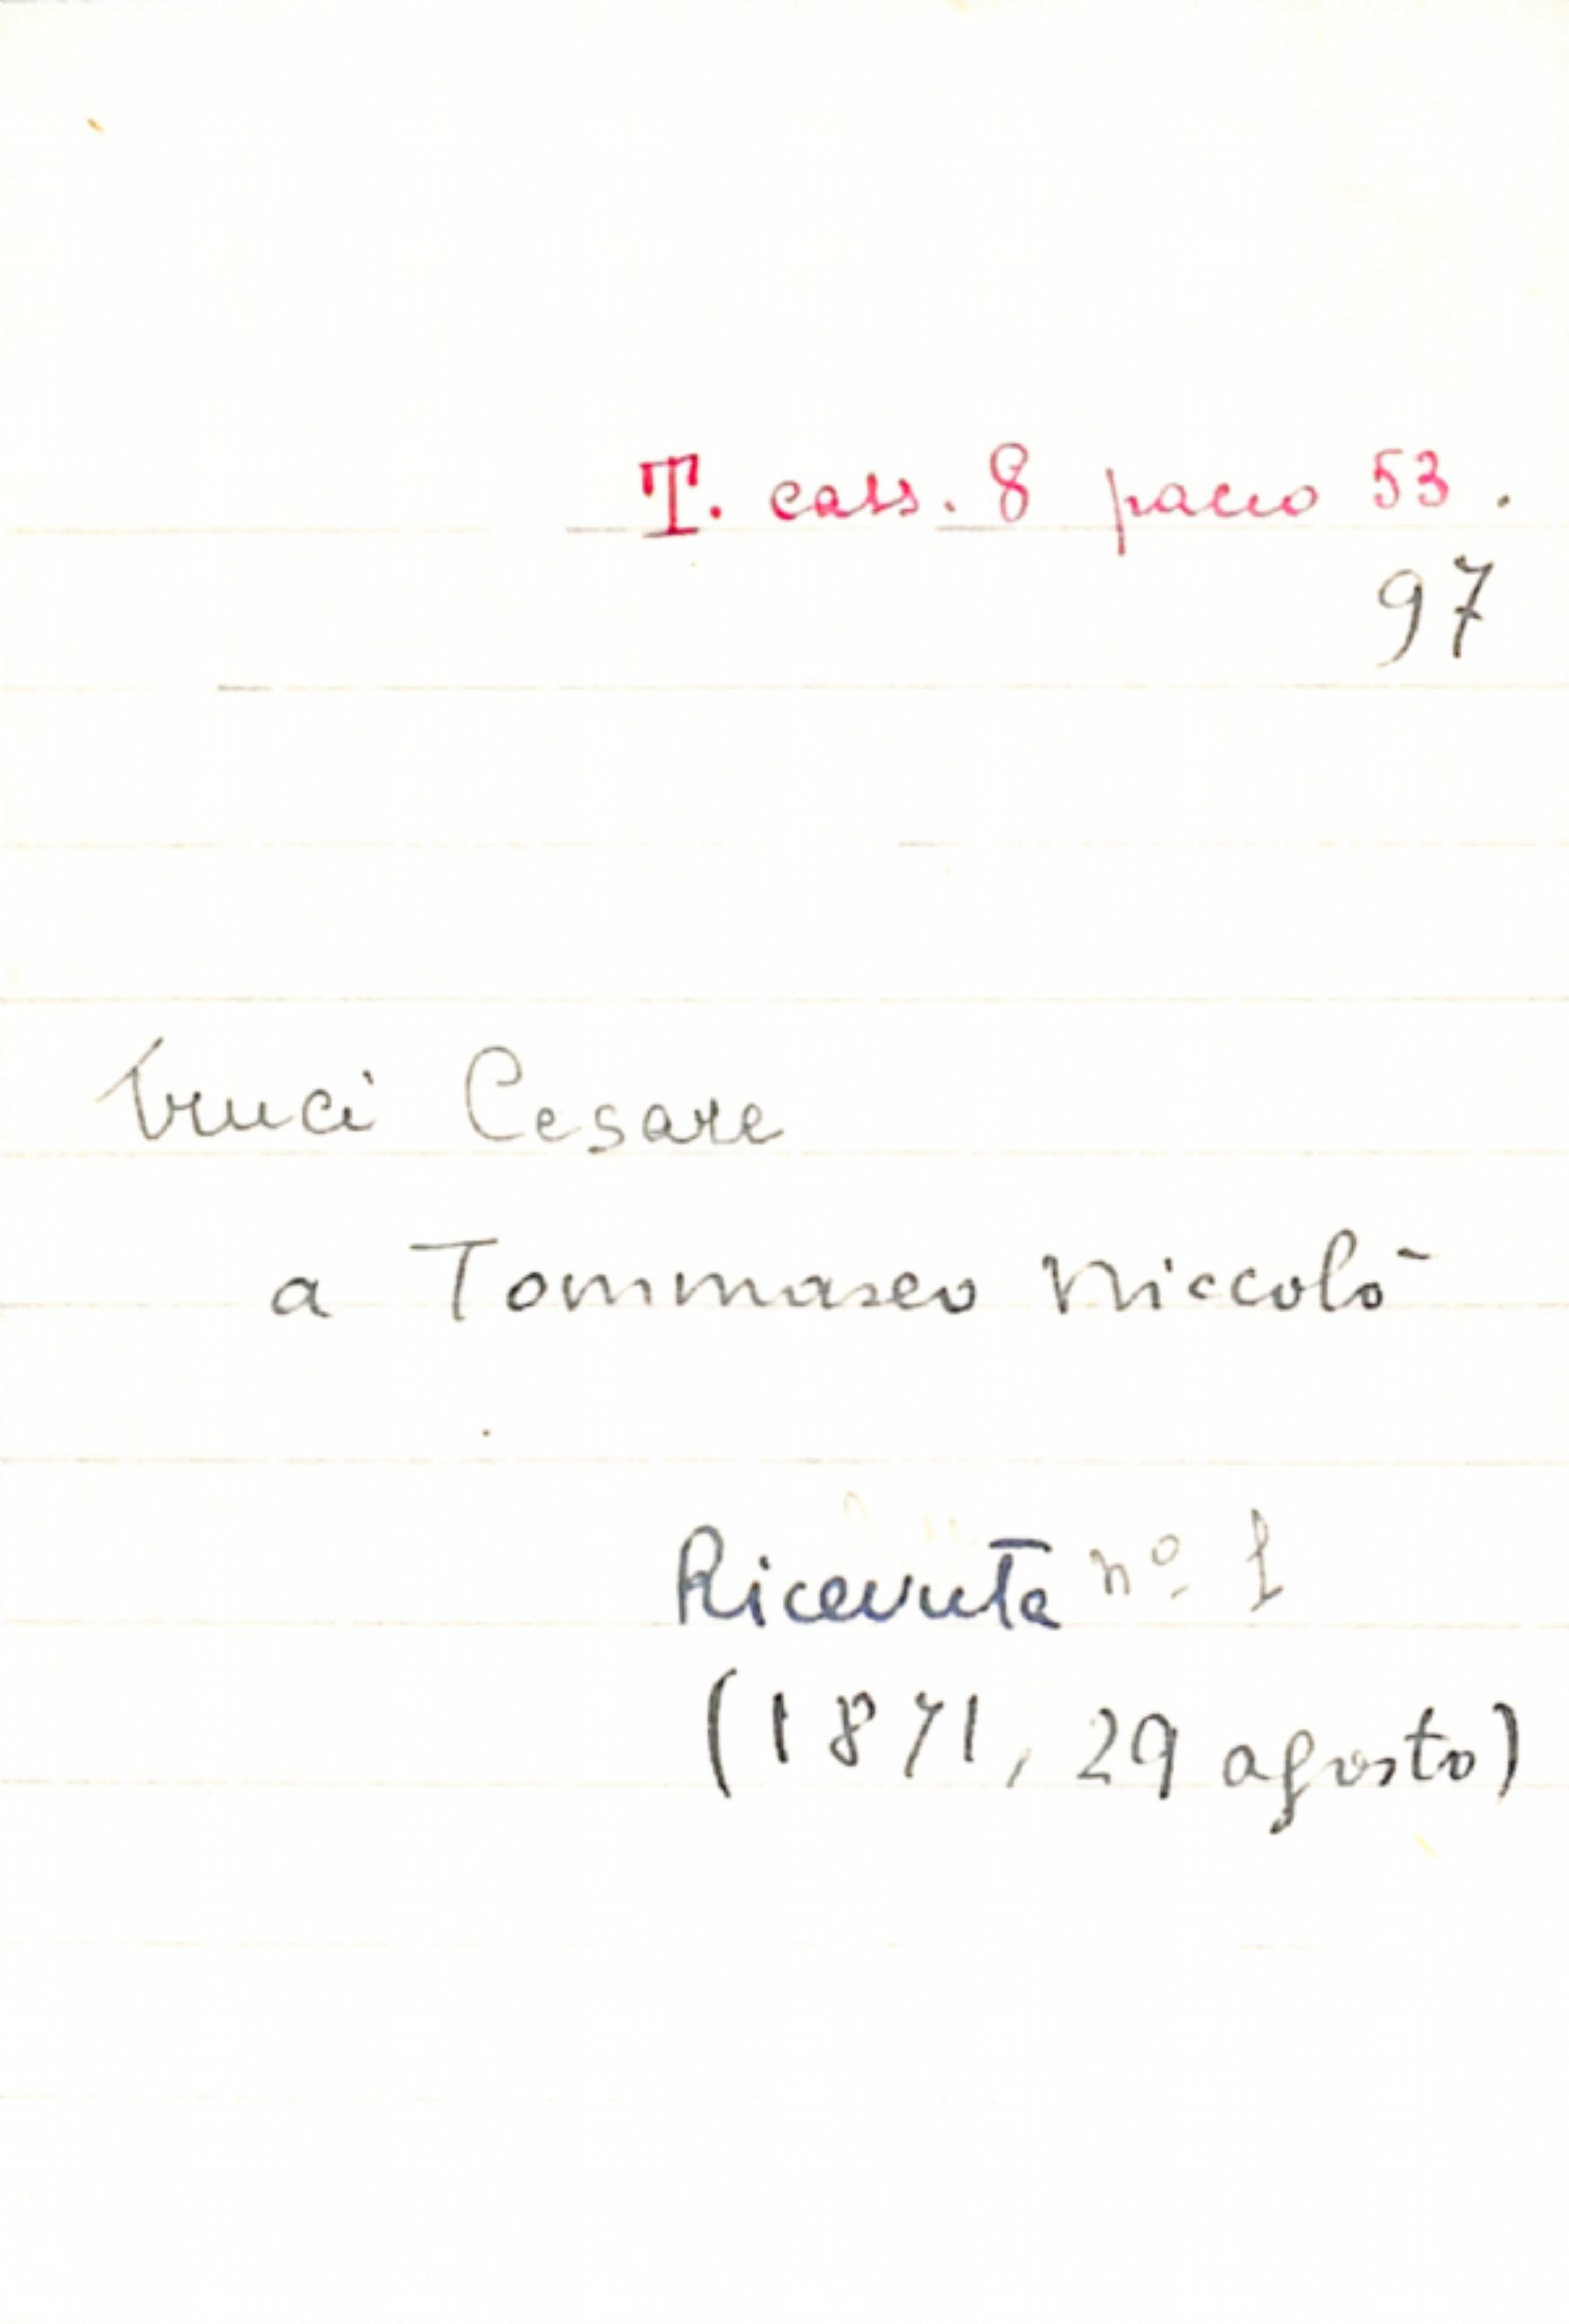 T. cass. 8 pacco 53.
97
Cesare
a Tommaseo Niccolò
Ricevuta nº 1
(1871, 29 agosto)